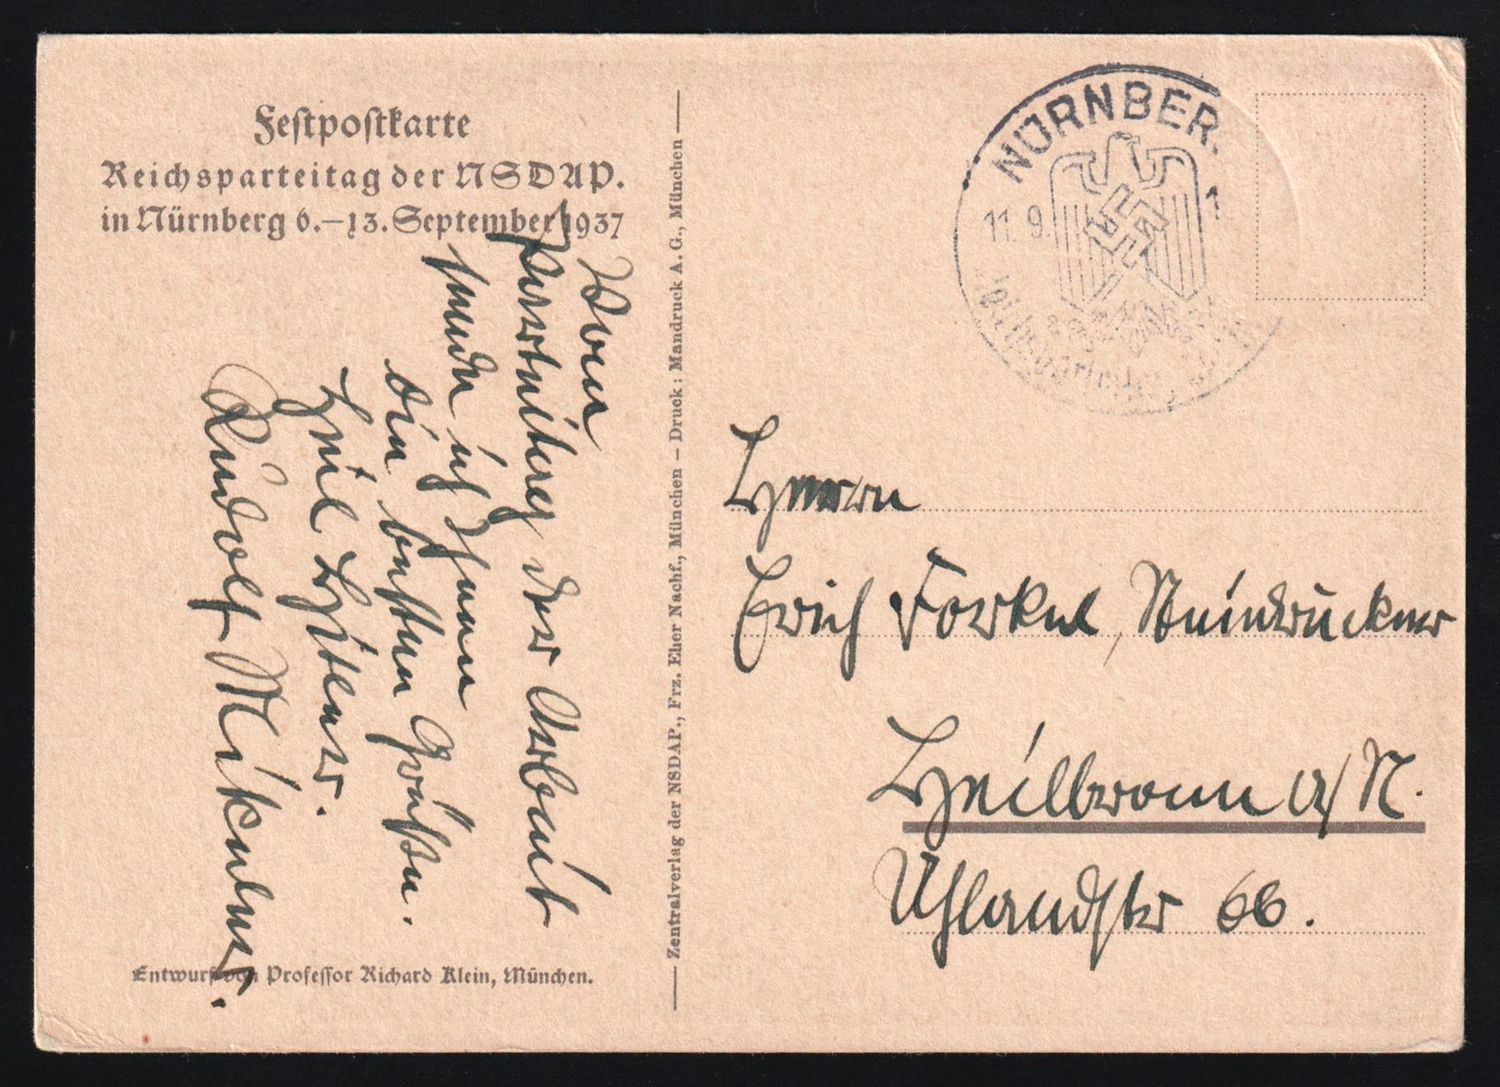 Festpostkarte
Reichsparteitag der NSDAP.
in Nürnberg 6.–13. September 1937
Vom
Parteitag der Arbeit
sende ich Ihnen
die besten Grüße.
Heil Hitler.
Rudolf
Entwurf von Professor Richard Klein, München.
Zentralverlag der NSDAP., Frz. Eher Nachf., München – Druck: Mandruck A. G., München
NÜRNBER
11. 9. 1
Herrn
Erich Forkel, Steindrucker
Heilbronn a/N.
Uhlandstr 66.